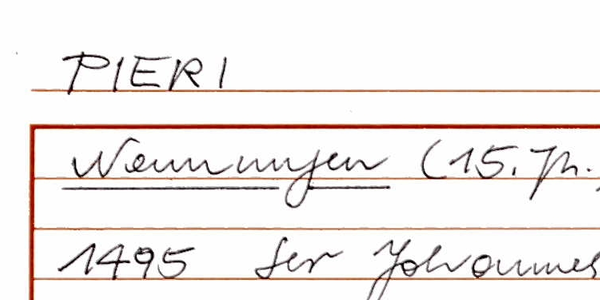 PIERI
Nennungen (15. Jh.)
1495 Ser Johannes